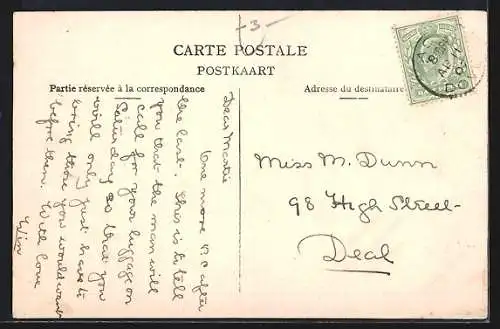 -3-
CARTE POSTALE
POSTKAART
Partie réservée à la correspondance
Adresse du destinataire
Dear Mastie
One more P.C after
the last. This is to tell
you that the man will
call for your luggage on
Saturday so that you
will only just have to
bring those you would want
before then. With love
Win
Miss M. Dunn
98 High Street
Deal